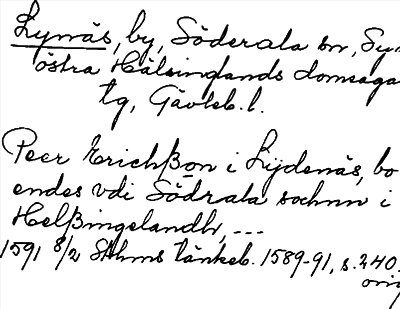 Lynäs, by, Söderala sn, Sy-
östra Hälsinglands domsaga
tg, Gävleb. l.
Peer Erichßon i Lijdenäs, bo-
endes vdi Södrala sochnn i
Helßingelandh, ---
1591 8/2 Sthms tänkeb. 1589-91, s. 240.
orig